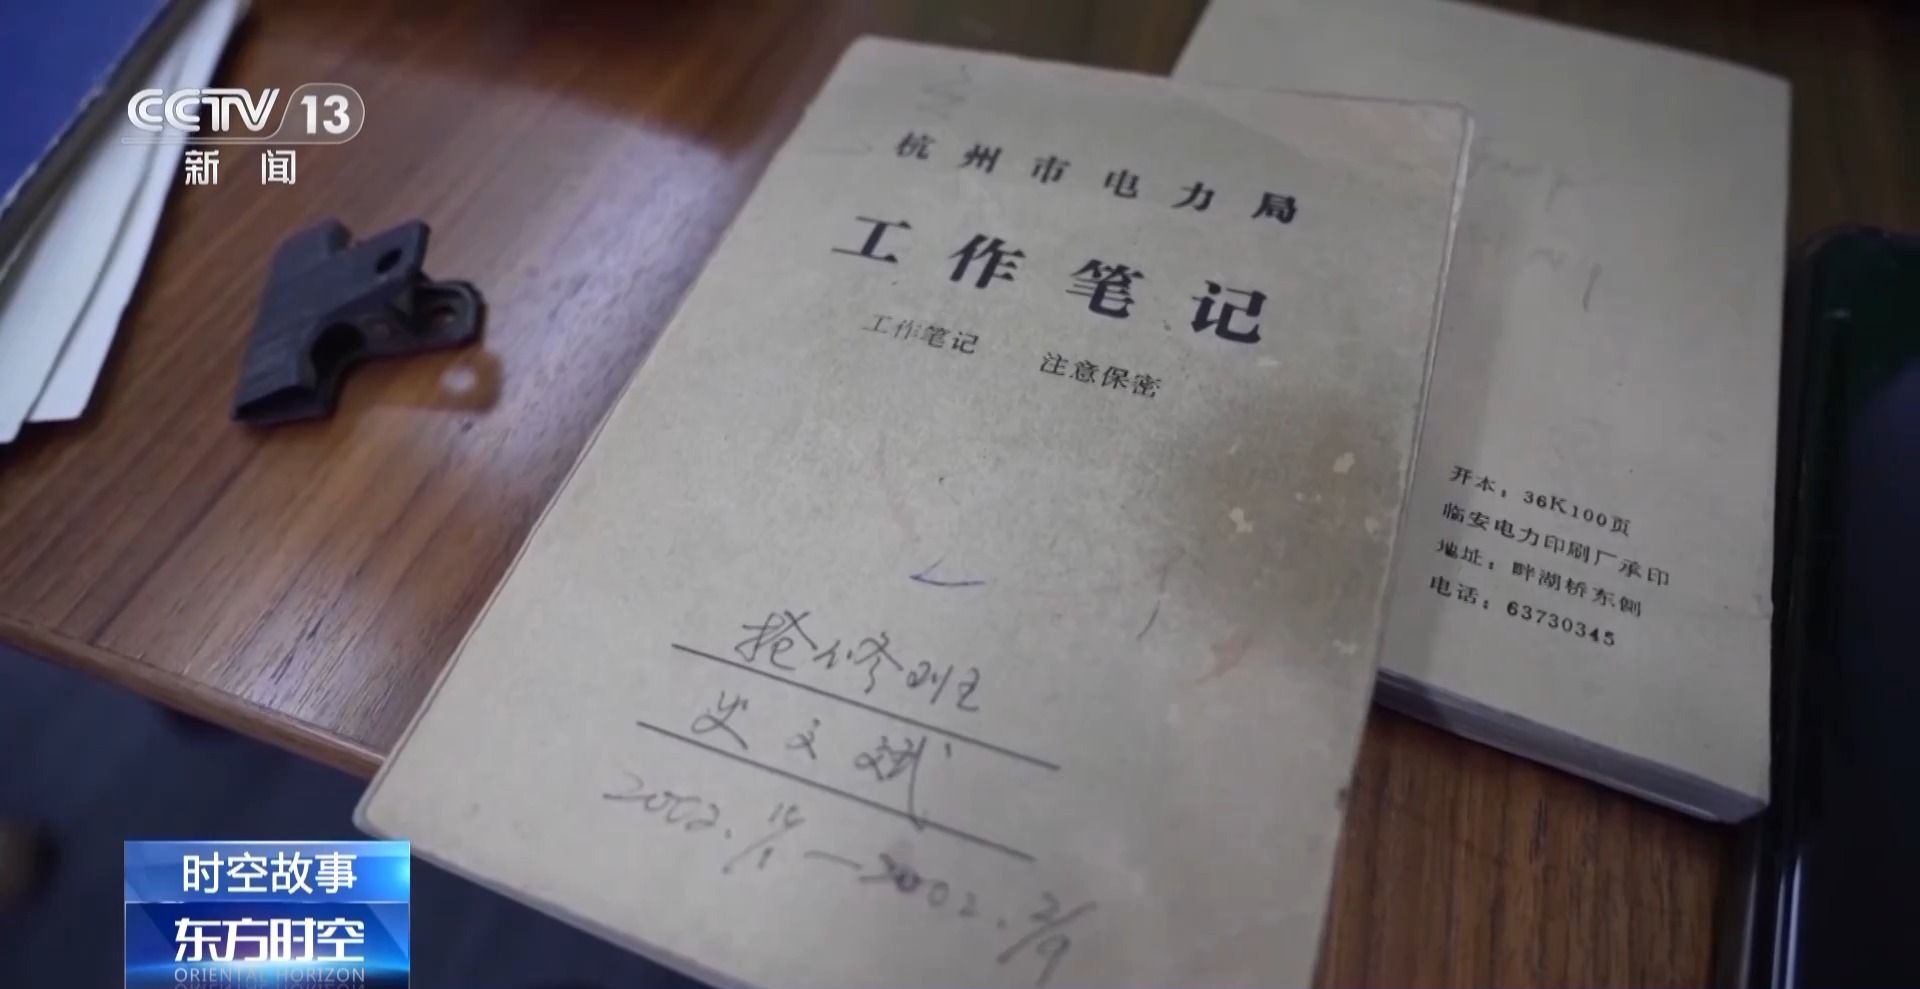 CCTV 13
新闻
杭州市电力局
工作笔记
工作笔记 注意保密
抢修班
史文斌
开本：36K100页
临安电力印刷厂承印
地址：畔湖桥东侧
电话：63730345
时空故事
东方时空
ORIENTAL HORIZON